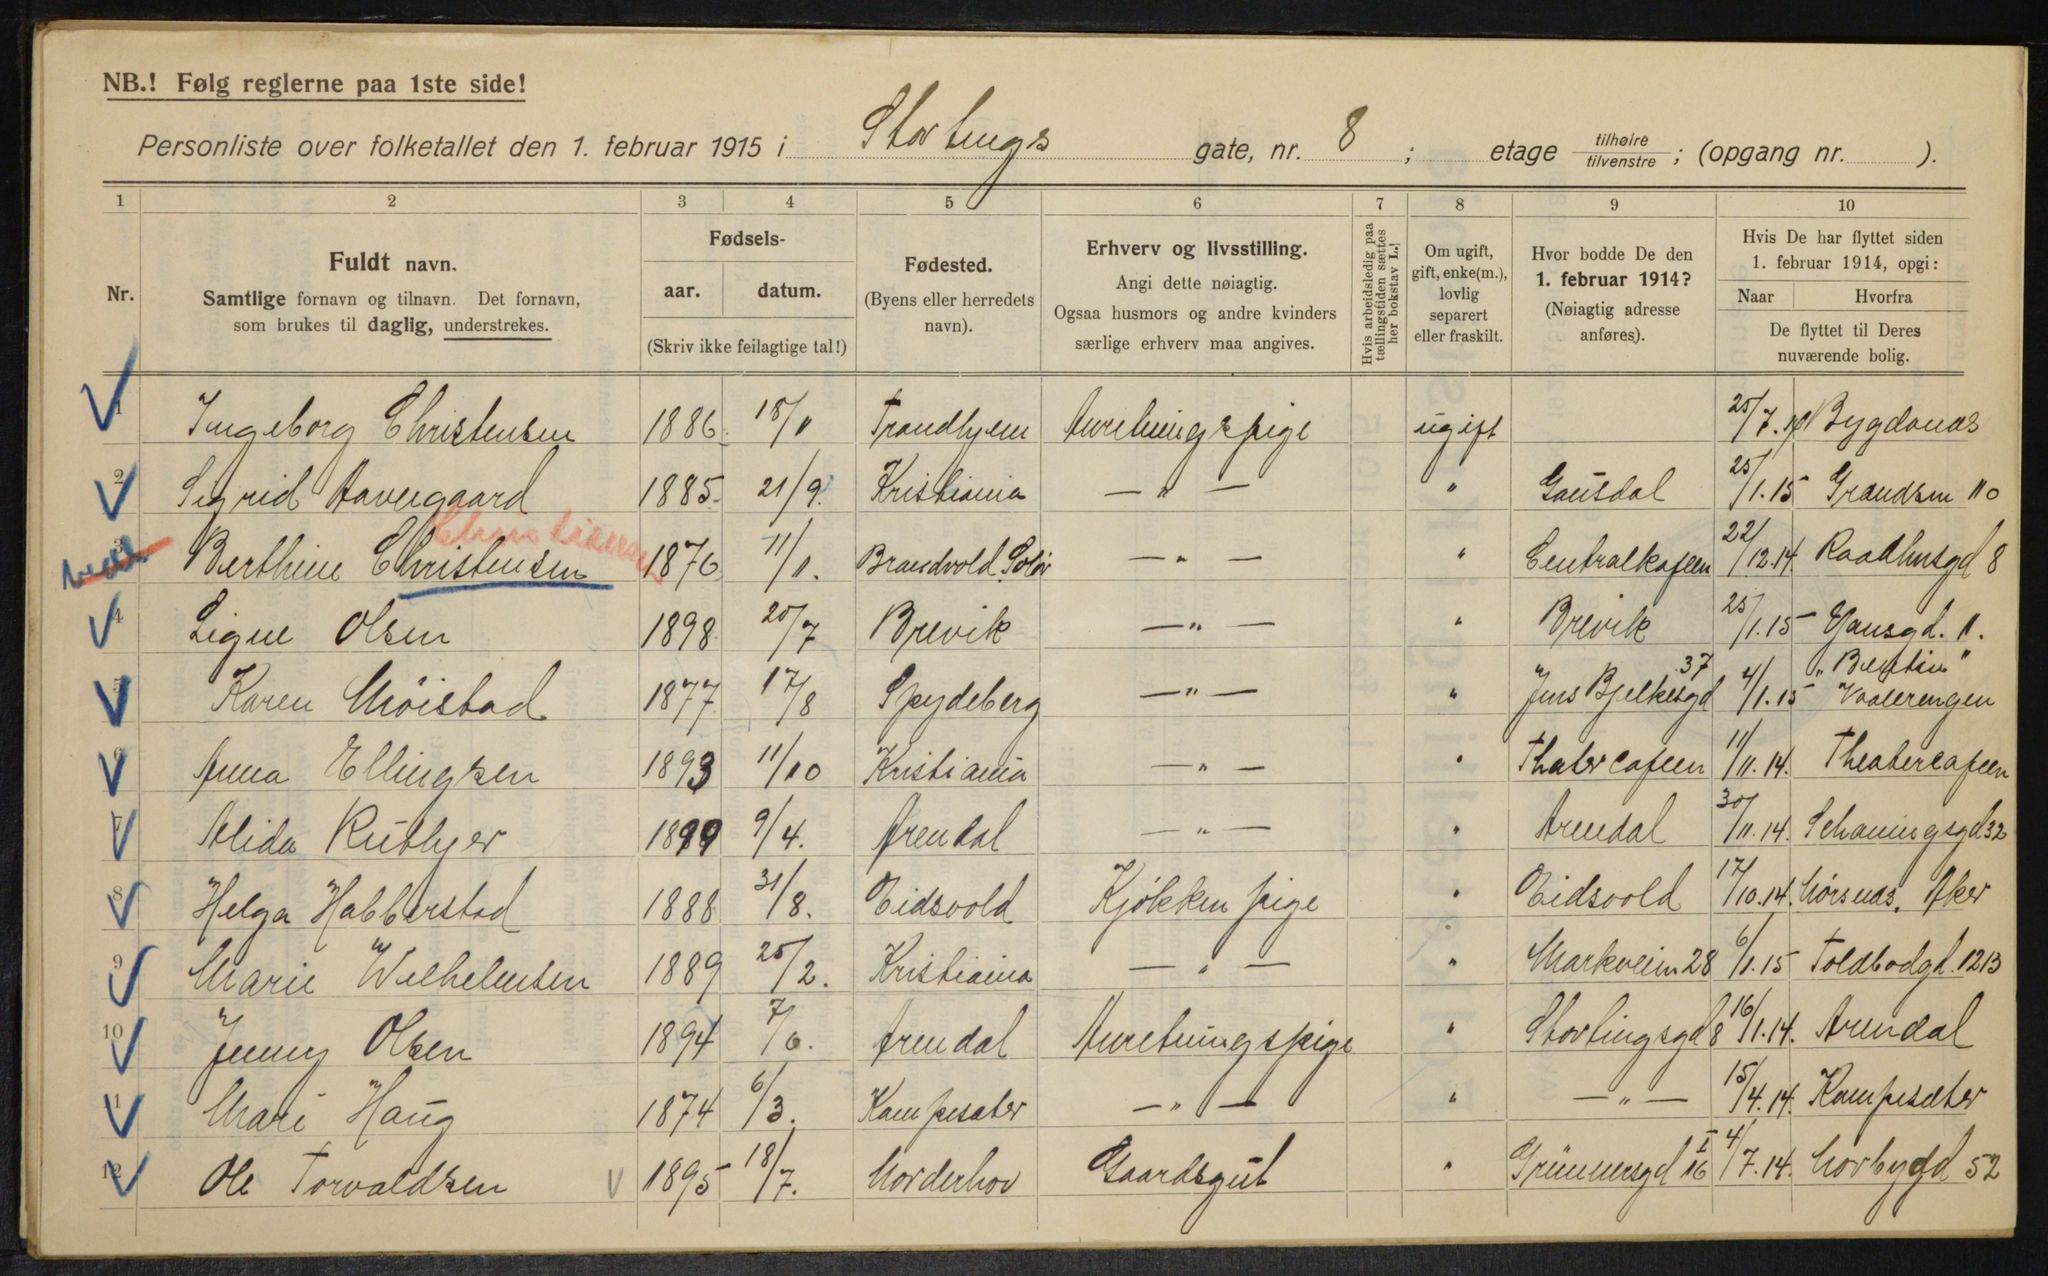 NB.! Følg reglerne paa 1ste side!
Personliste over folketallet den 1. februar 1915 i Stortings gate, nr. 8 ; etage tilhøire/tilvenstre ; (opgang nr. ).
1 2 3 4 5 6 7 8 9 10
Nr.
Fuldt navn.
Samtlige fornavn og tilnavn. Det fornavn,
som brukes til daglig, understrekes.
Fødsels-
aar. datum.
(Skriv ikke feilagtige tal!)
Fødested.
(Byens eller herredets
navn).
Erhverv og livsstilling.
Angi dette nøiagtig.
Ogsaa husmors og andre kvinders
særlige erhverv maa angives.
Hvis arbeidsledig paa
tællingstiden sættes
her bokstav L.!
Om ugift,
gift, enke(m.),
lovlig
separert
eller fraskilt.
Hvor bodde De den
1. februar 1914?
(Nøiagtig adresse
anføres).
Hvis De har flyttet siden
1. februar 1914, opgi:
Naar Hvorfra
De flyttet til Deres
nuværende bolig.
1 Ingeborg Christensen 1886 18/11 Trondhjem Anretningspige ugift 25/7. Bygdønæs
2 Sigrid Havergaard 1885 21/9. Kristiania — " — " Gausdal 25/1.15 Grændsen 110
3 Berthine Christensen 1876 11/11. Brandvold Solør — " — " Centralkafeen 22/12.14 Raadhusgd 8
4 Signe Olsen 1898 20/7 Brevik — " — " Brevik 25/1.15 Gansgd. 11.
5 Karen Moistad 1877 17/8 Spydeberg — " — " Jens Bjelkesgd 37 4/1.15 "Bertin" Vaalerengen
6 Anna Ellingsen 1893 11/10 Kristiania — " — " Theatercafeen 11/11.14. Theatercafeen
7 Alida Rutbjer 1899 9/4. Arendal — " — " Arendal 30/11.14. Schaningsgd 32
8 Helga Habberstad 1888 31/8. Eidsvold Kjøkken pige " Eidsvold 17/10.14. Aker
9 Marie Wilhelmsen 1889 25/2. Kristiania — " — " Markveien 28 6/1.15 Toldbodgd. 1213
10 Jenny Olsen 1894 7/6. Arendal Anretningspige " Stortingsgd 8 16/1.14. Arendal
11 Mari Haug 1874 6/3. Kampesæter — " — " — " — 15/4.14. Kampesæter
12 Ole Torvaldsen 1895 18/7. Norderhov Gaardsgut " Grünnersgd 16 I 4/7.14. Norbygd 52